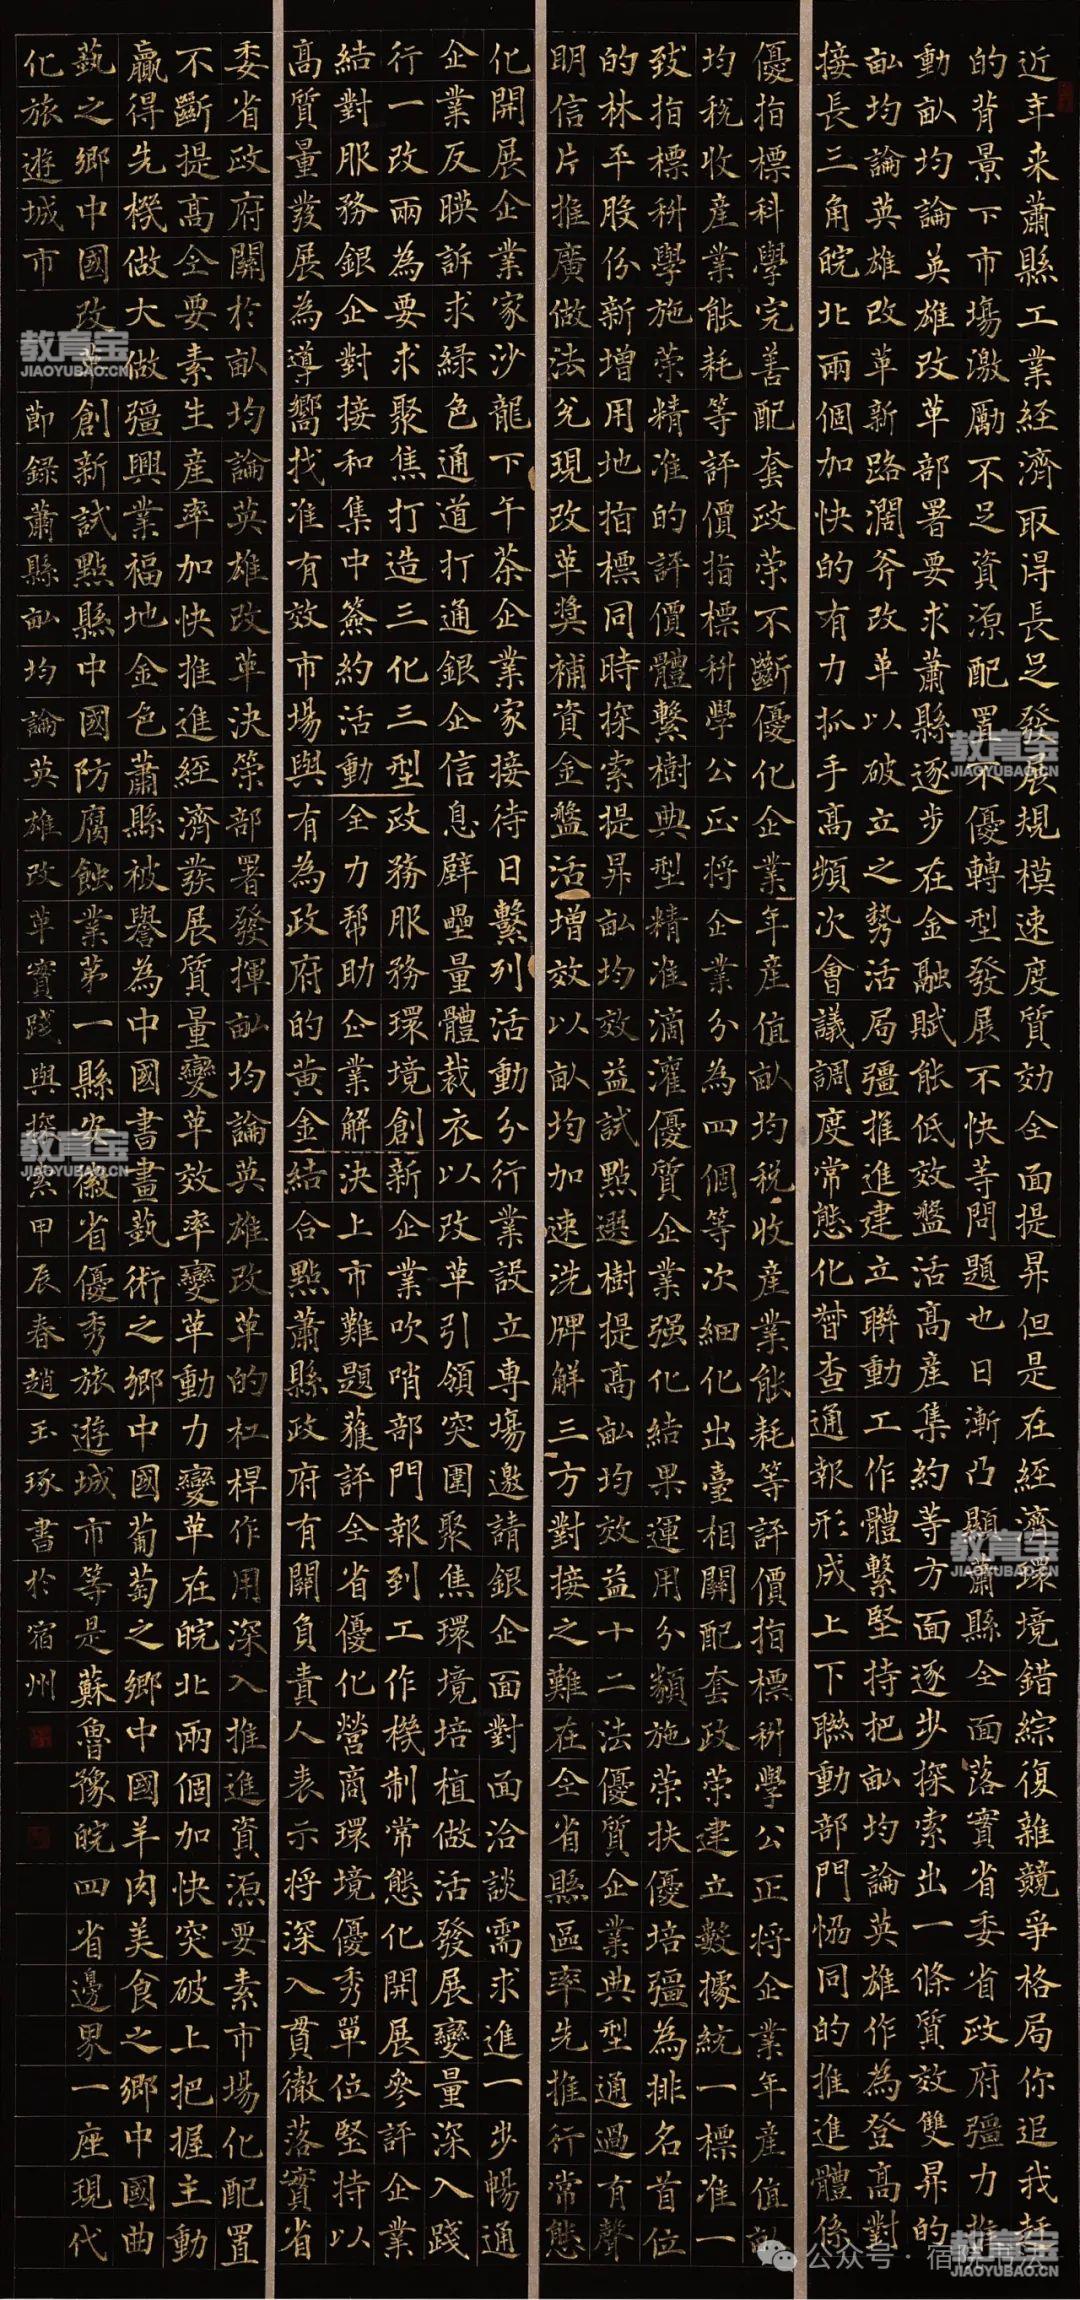 近年来蕭縣工業經濟取得長足發展規模速度質効全面提昇但是在經濟環境錯綜復雜競爭格局你追我趕
的背景下市場激勵不足資源配置不優轉型發展不快等問題也日漸凸顯蕭縣全面落實省委省政府彊力推
動畝均論英雄改革部署要求蕭縣逐步在金融賦能低效盤活高産集約等方面逐步探索出一條質效雙昇的
畝均論英雄改革新路濶斧改革以破立之勢活局彊推進建立聯動工作體繫堅持把畝均論英雄作為登高對
接長三角皖北兩個加快的有力抓手高頻次會議調度常態化督查通報形成上下聯動部門恊同的推進體係
優指標科學完善配套政策不斷優化企業年産值畝均税收産業能耗等評價指標科學公正將企業年産值畝
均税收産業能耗等評價指標科學公正將企業分為四個等次細化出臺相關配套政策建立數據統一標准一
致指標科學施策精准的評價體繫樹典型精准滴灌優質企業强化結果運用分類施策扶優培彊為排名首位
的林平股份新增用地指標同時探索提昇畝均效益試點選樹提高畝均效益十二法優質企業典型通過有聲
明信片推廣做法兑現改革奬補資金盤活增效以畝均加速洗牌解三方對接之難在全省縣區率先推行常態
化開展企業家沙龍下午茶企業家接待日繫列活動分行業設立專場邀請銀企面對面洽談需求進一步暢通
企業反映訴求緑色通道打通銀企信息壁壘量體裁衣以改革引領突圍聚焦環境培植做活發展變量深入踐
行一改兩為要求聚焦打造三化三型政務服務環境創新企業吹哨部門報到工作機制常態化開展參評企業
結對服務銀企對接和集中簽約活動全力幫助企業解決上市難題獲評全省優化營商環境優秀單位堅持以
高質量發展為導嚮找准有效市場與有為政府的黄金結合點蕭縣政府有關負責人表示將深入貫徹落實省
委省政府關於畝均論英雄改革決策部署發揮畝均論英雄改革的杠桿作用深入推進資源要素市場化配置
不斷提高全要素生産率加快推進經濟發展質量變革效率變革動力變革在皖北兩個加快突破上把握主動
贏得先機做大做彊興業福地金色蕭縣被譽為中國書畫藝術之鄉中國葡萄之鄉中國羊肉美食之鄉中國曲
藝之鄉中國改革創新試點縣中國防腐蝕業第一縣安徽省優秀旅遊城市等是蘇魯豫皖四省邊界一座現代
化旅遊城市 節録蕭縣畝均論英雄改革實踐與探索甲辰春趙玉琢書於宿州
教育宝
JIAOYUBAO.CN
教育宝
JIAOYUBAO.CN
教育宝
JIAOYUBAO.CN
教育宝
JIAOYUBAO.CN
教育宝
JIAOYUBAO.CN
公众号·宿院书法